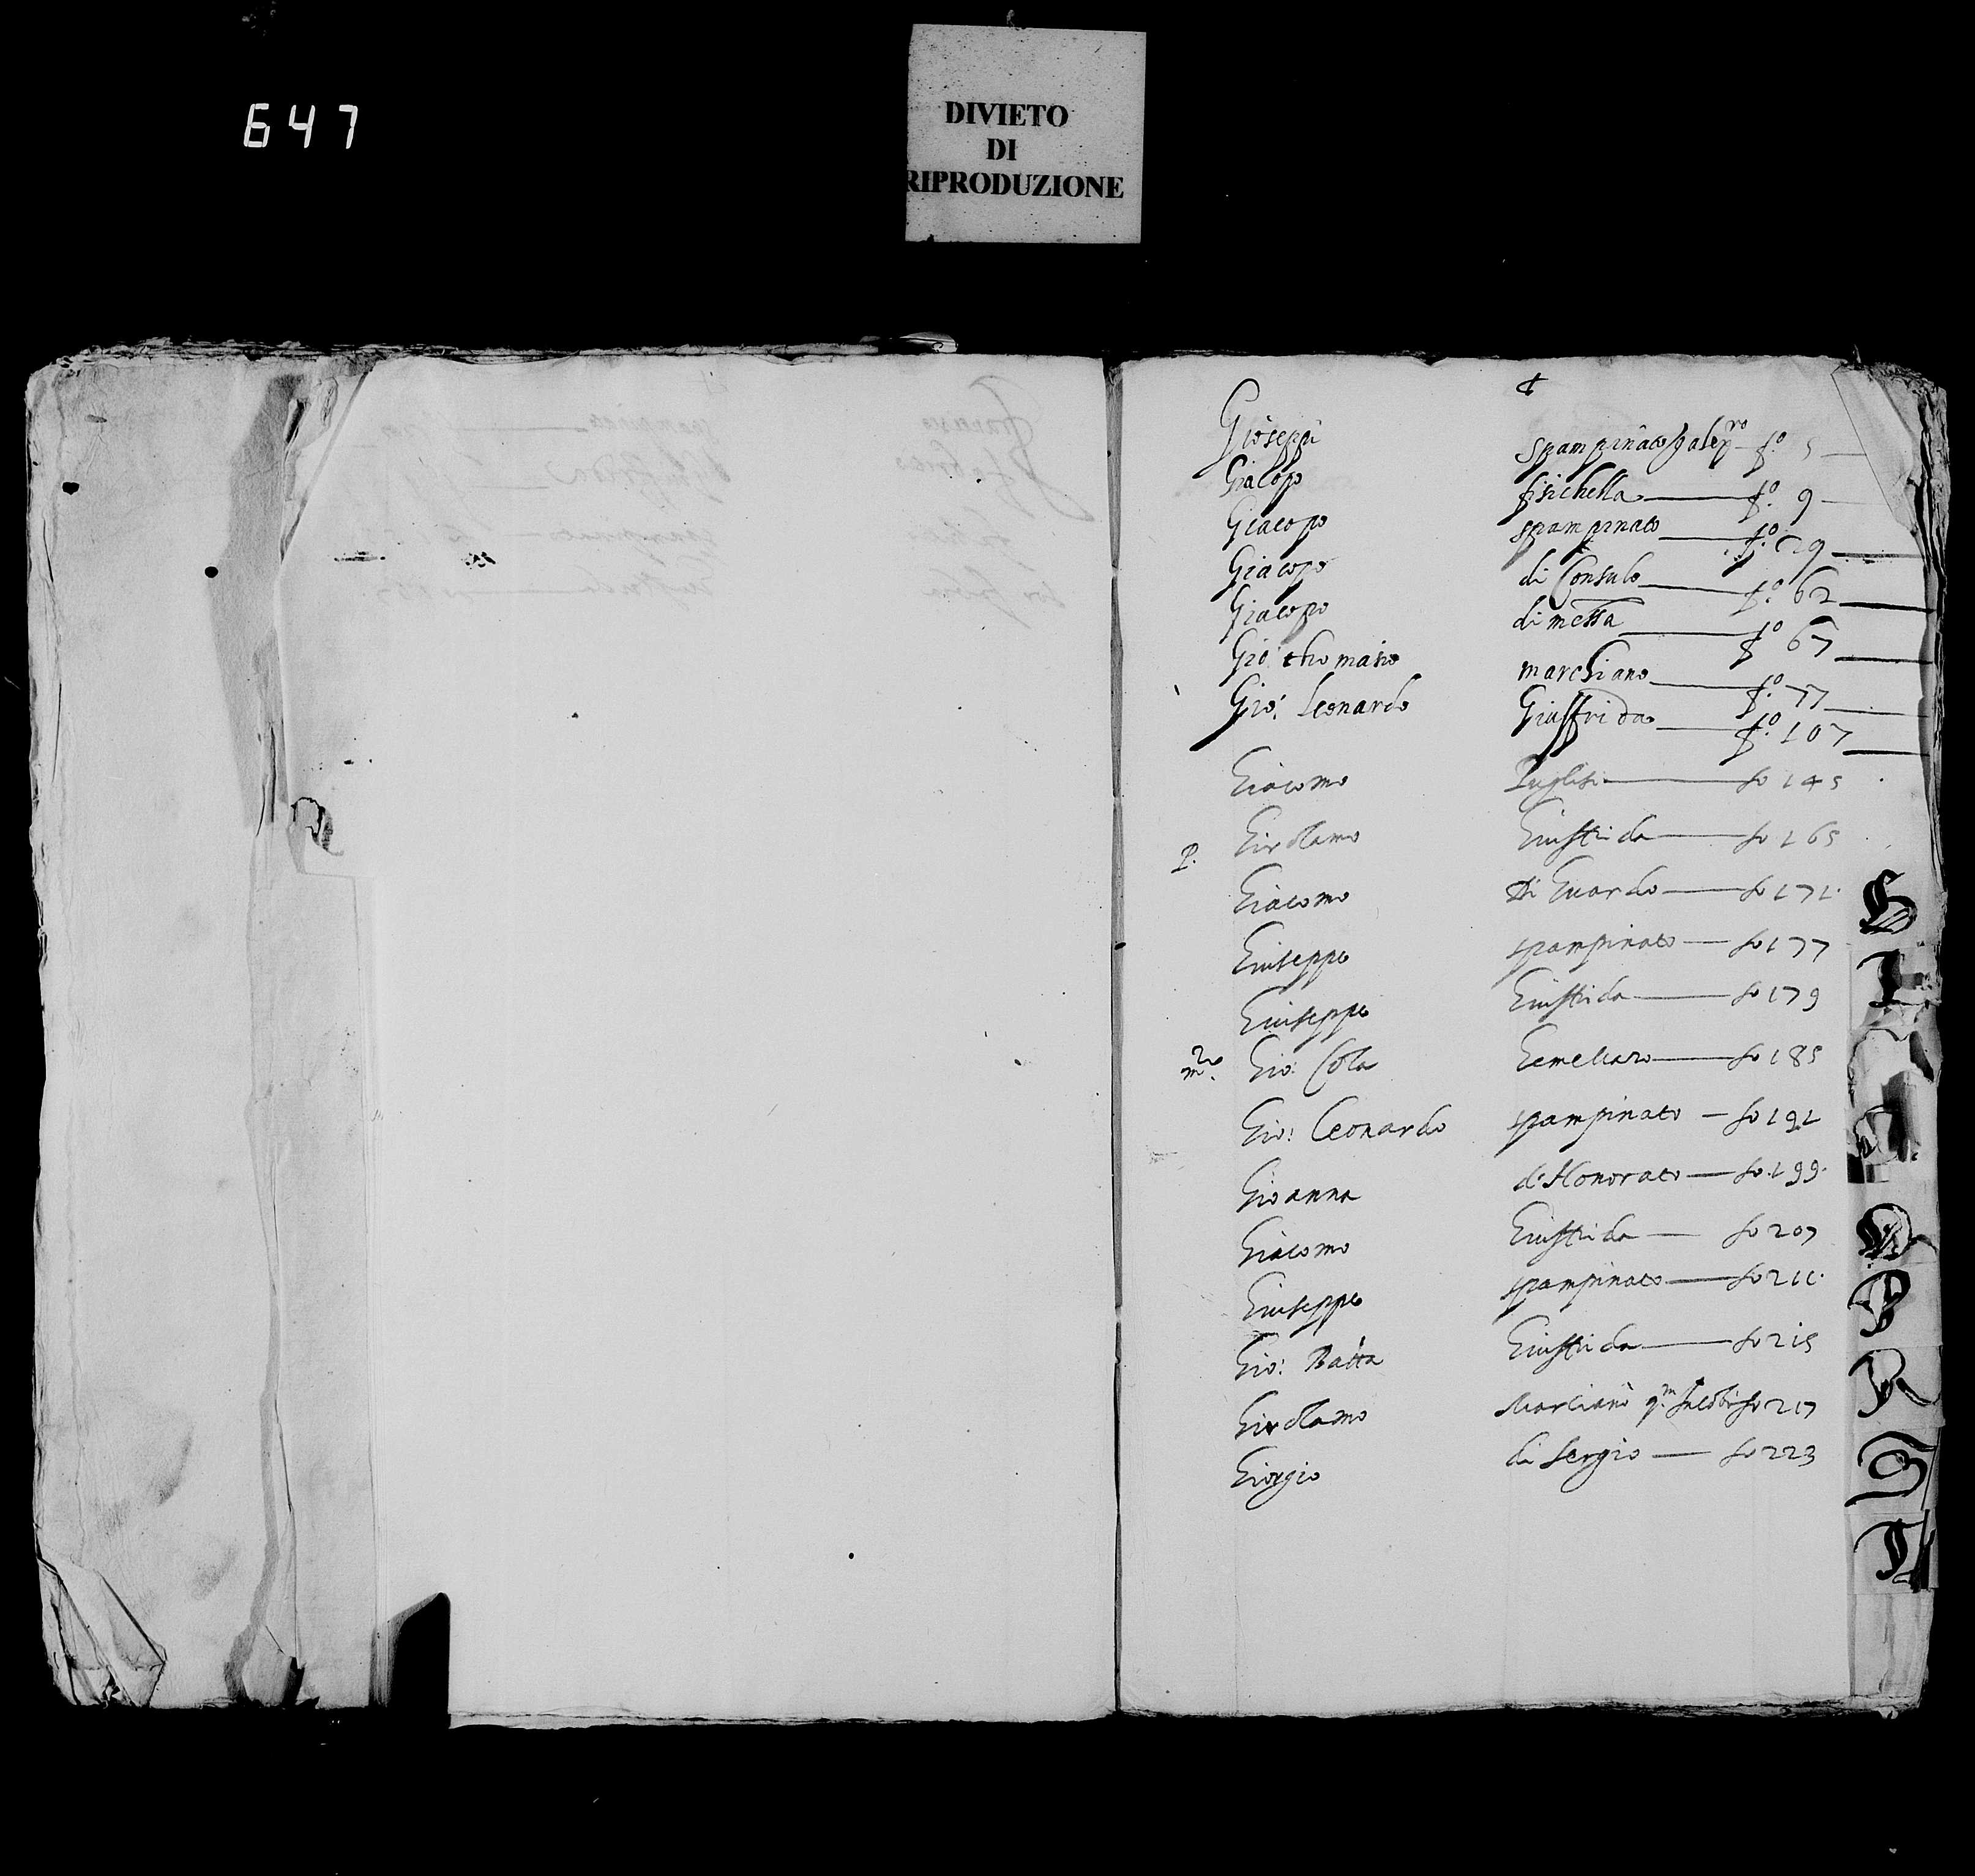 647
DIVIETO
DI
RIPRODUZIONE
Gioseppi spampinato fo 5
Giacopo fisichella fo 9
Giacopo spampinato fo 29
Giacopo di Consulo fo 62
Giacopo di messa fo 67
Gio: thomaso marchiano fo 77
Gio: Leonardo Giuffrida fo 107
Giacomo Puglisi fo 145
P. Girolamo Giuffrida fo 165
Giacomo Di Guardo fo 171
Giuseppe spampinato fo 177
Giuseppe Giuffrida fo 179
mro Gio: Cola Gemellaro fo 185
Gio: Leonardo spampinato fo 191
Gioanna d'Honorato fo 199
Giacomo Giuffrida fo 207
Giuseppe spampinato fo 211
Gio: Batta Giuffrida fo 215
Girolamo Marciano qm Jacobi fo 217
Giorgio di Sergio fo 223
H
I
O
P
R
S
T